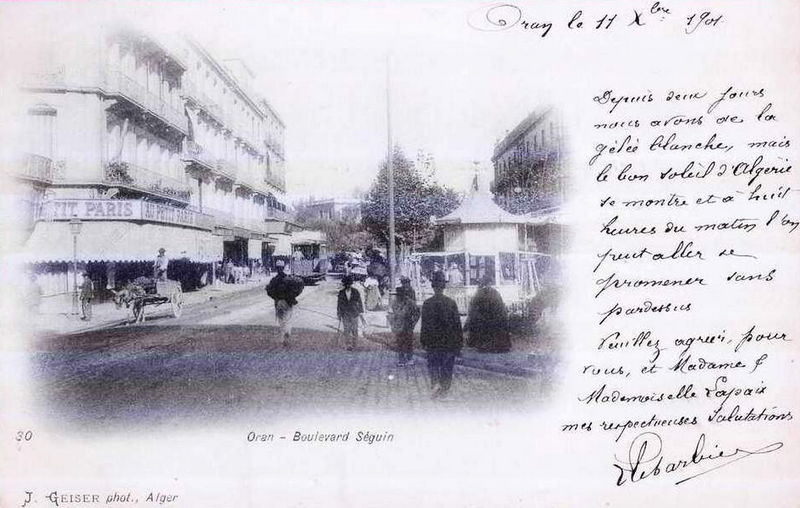 Oran le 11 Xbre 1901
Depuis deux jours
nous avons de la
gelée blanche, mais
le bon soleil d'Algérie
se montre et à huit
heures du matin l'on
peut aller se
promener sans
pardessus
Veuillez agréer, pour
vous, et Madame &
Mademoiselle Lapaix
mes respectueuses Salutations
PETIT PARIS
AU PETIT PARIS
30
Oran - Boulevard Séguin
J. GEISER phot., Alger